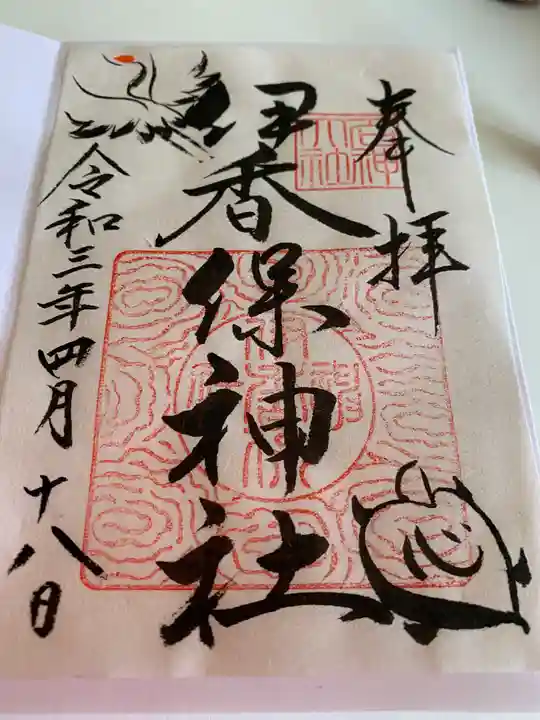 奉拝
伊香保神社
令和三年四月十八日
心